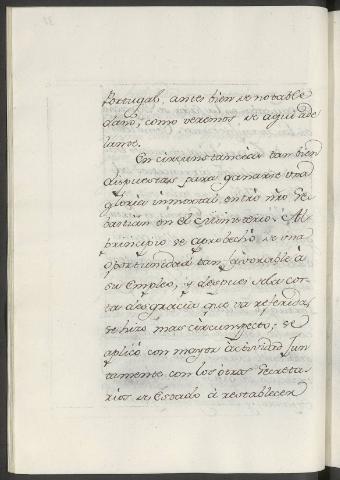 Portugal, antes bien de notable
daño, como veremos de aqui ade
lante.
En circunstancias tan bien
dispuestas para ganarse una
gloria inmortal entró nro Se
bastian en el Ministerio. Al
principio se aprobechó de una
oportunidad tan favorable à
su Empleo, y despues de la cor
ta desgracia que va referida
se hizo mas circunspecto; se
aplicó con mayor actividad jun
tamente con los otros Secreta
rios de Estado à restablecer